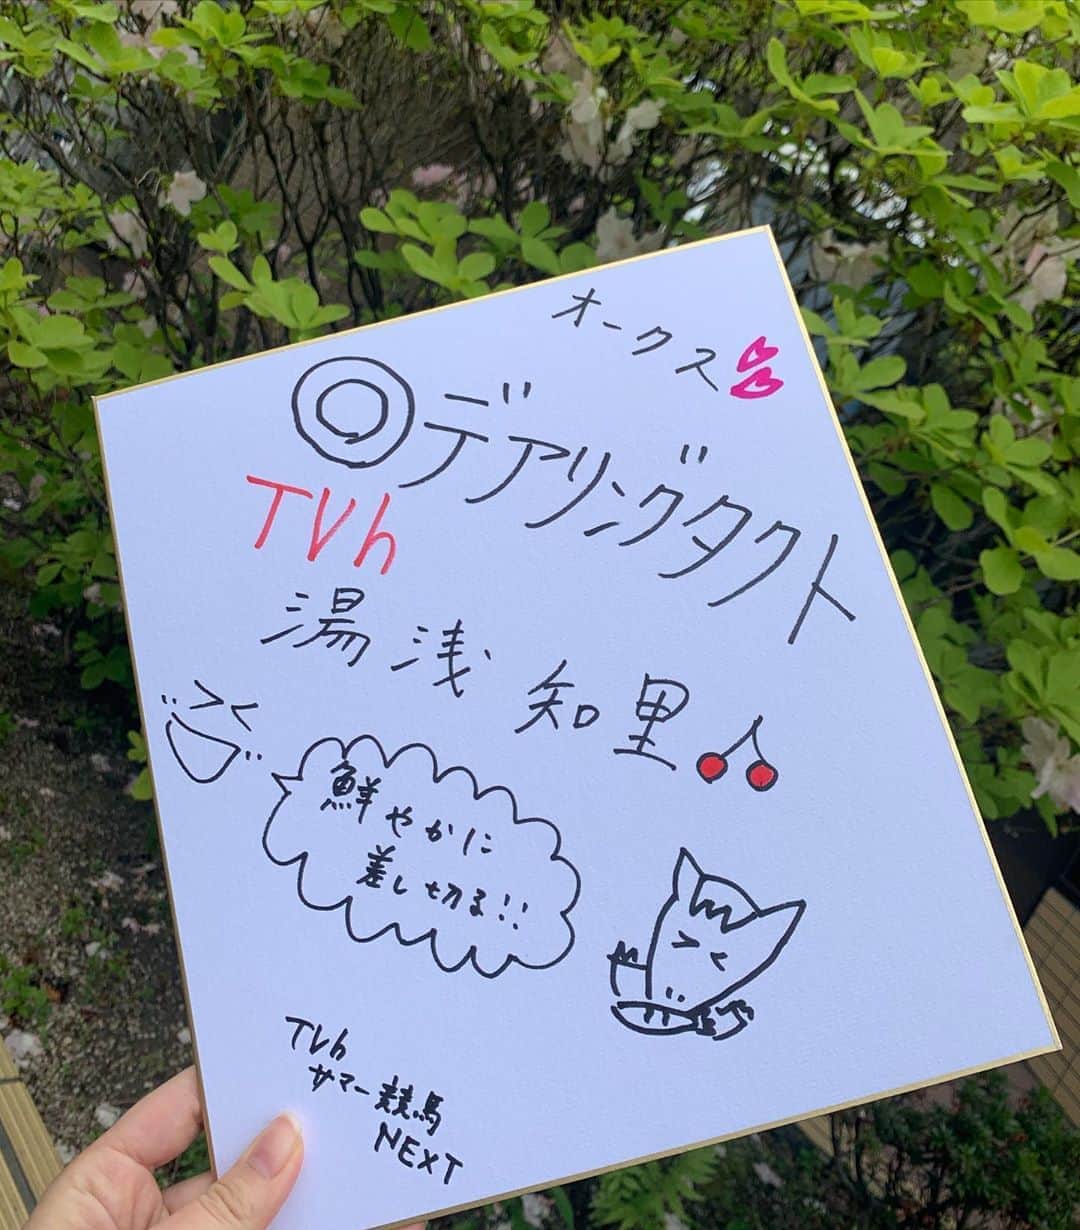 オークス
◎デアリングタクト
TVh
湯浅 知里
鮮やかに
差し切る!!
TVh
サマー競馬
NEXT